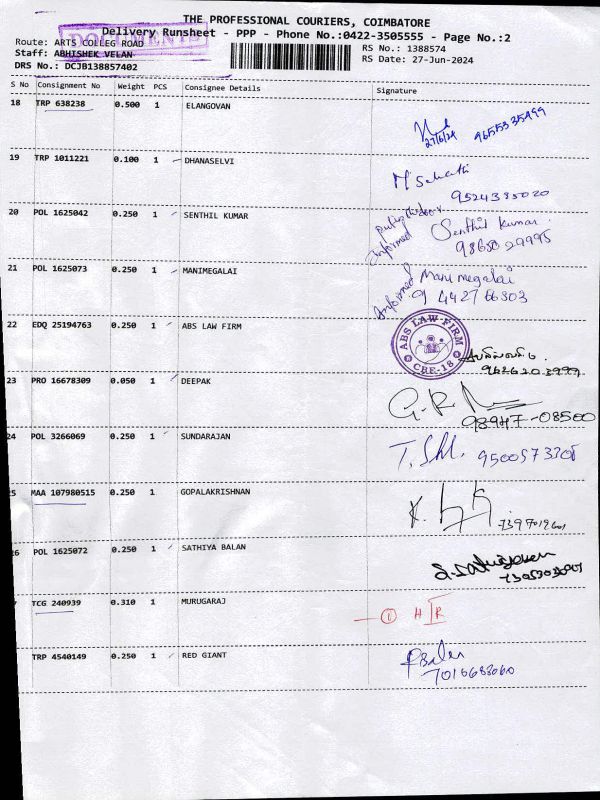 THE PROFESSIONAL COURIERS, COIMBATORE
Delivery Runsheet - PPP - Phone No.:0422-3505555 - Page No.:2
Route: ARTS COLLEG ROAD
RS No.: 1388574
DOCUMENTS
Staff: ABHISHEK VELAN
RS Date: 27-Jun-2024
DRS No.: DCJB138857402
S No Consignment No Weight PCS Consignee Details Signature
18 TRP 638238 0.500 1 ELANGOVAN
27/6/24 9655535499
19 TRP 1011221 0.100 1 DHANASELVI
9524385020
20 POL 1625042 0.250 1 SENTHIL KUMAR
Informed Senthil Kumar.
98650 29995
21 POL 1625073 0.250 1 MANIMEGALAI
Informed Manimegalai
9442766303
22 EDQ 25194763 0.250 1 ABS LAW FIRM
ABS LAW FIRM
CBE-18
23 PRO 16678309 0.050 1 DEEPAK
98947-08500
24 POL 3266069 0.250 1 SUNDARAJAN
25 MAA 107980515 0.250 1 GOPALAKRISHNAN
26 POL 1625072 0.250 1 SATHIYA BALAN
TCG 240939 0.310 1 MURUGARAJ
1 H R
TRP 4540149 0.250 1 RED GIANT